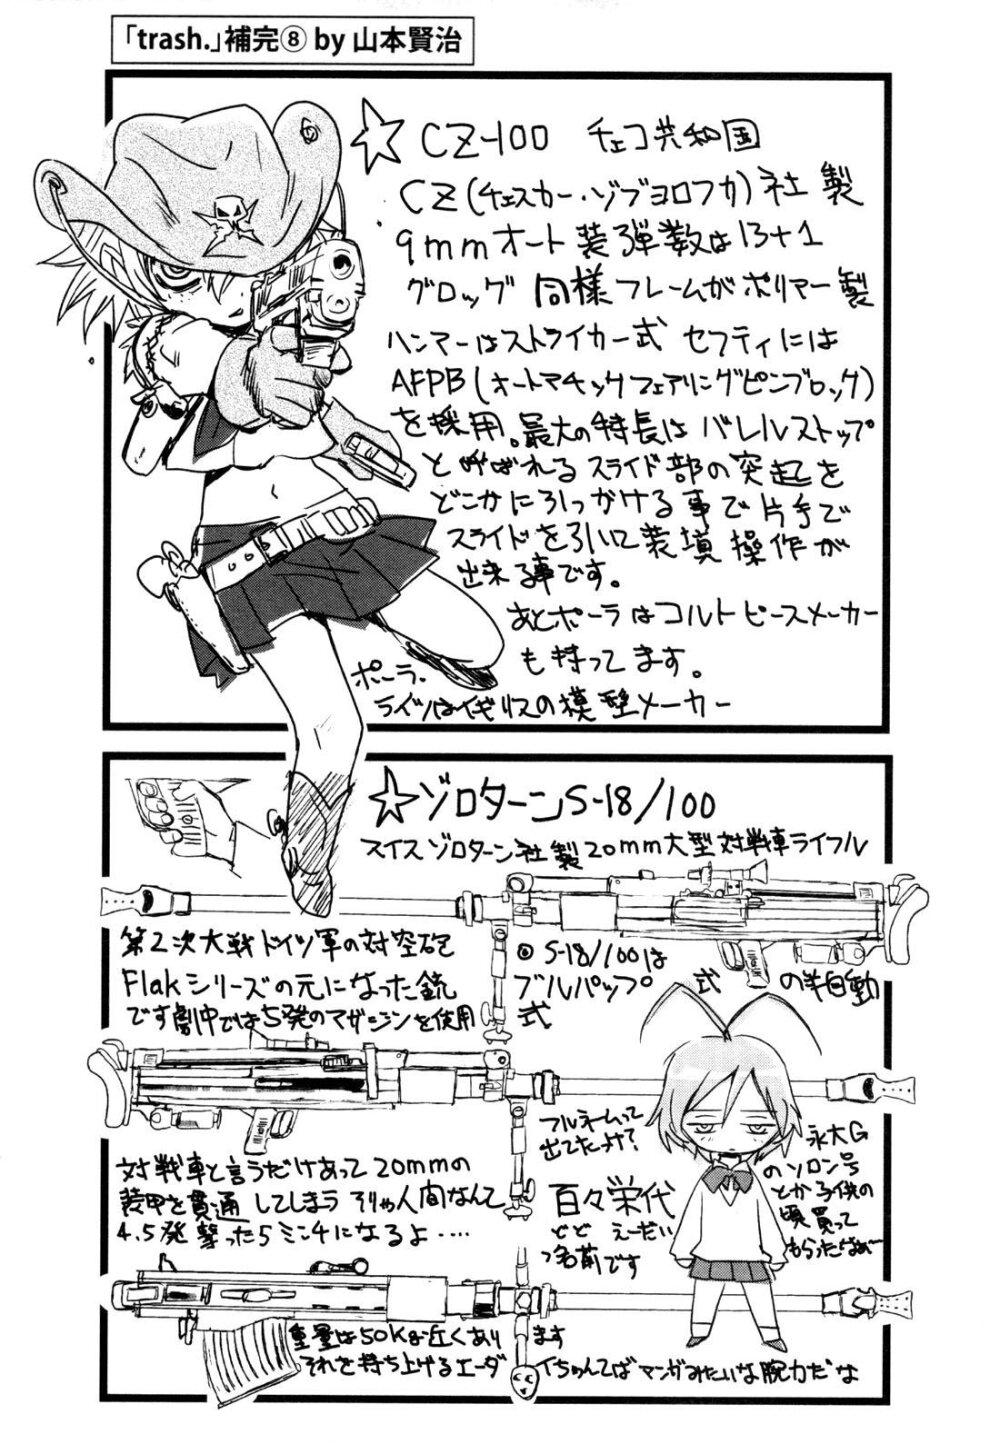 「trash.」補完⑧ by 山本賢治
☆CZ-100 チェコ共和国
CZ(チェスカー・ゾブヨロフカ)社製
9mmオート装弾数は13+1
グロッグ同様フレームがポリマー製
ハンマーはストライカー式 セフティには
AFPB(オートマチックファアリングピンブロック)
を採用。最大の特長はバレルストップ
と呼ばれるスライド部の突起を
どこかに引っかける事で片手で
スライドを引いて装填操作が
出来る事です。
あとポーラはコルトピースメーカー
も持ってます。
ポーラ・
ライツはイギリスの模型メーカー
☆ゾロターンS-18/100
スイスゾロターン社製20mm大型対戦車ライフル
第2次大戦ドイツ軍の対空砲
Flakシリーズの元になった銃
です劇中では5発のマガジンを使用
◎S-18/100は
ブルパップ式の半自動
式
フルネームって
出てたっけ?
百々栄代
どど えーだい
つ名前です
永大G
のゾロン号
とか子供の
頃買って
もらったなぁ〜
対戦車と言うだけあって20mmの
装甲を貫通してしまう そりゃ人間なんて
4.5発撃ったらミンチになるよ‥‥
重量は50kg近くあります
それを持ち上げるエーダイちゃんてばマンガみたいな腕力だな